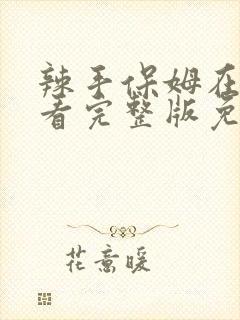 辣手保姆在
看完整版免
花意暖